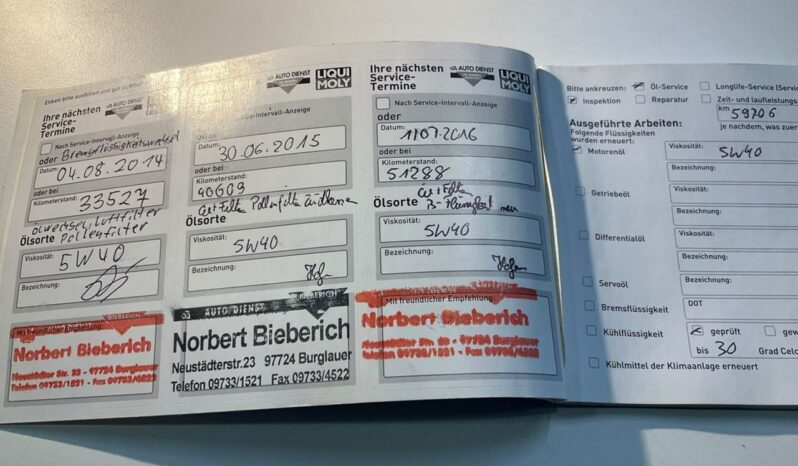 Etikett bitte ausfüllen und gut sichtbar
Ihre nächsten
Service-
Termine
AUTO DIENST
Nach Service-Intervall-Anzeige
oder Bremsflüssigkeitswechsel
Datum:
04.08.2014
oder bei
Kilometerstand:
33527
Ölwechsel, Luftfilter
Ölsorte Pollenfilter
Viskosität:
5W40
Bezeichnung:
Mit freundlicher Empfehlung
BIEBERICH
Norbert Bieberich
Neustädter Str. 23 - 97724 Burglauer
Telefon 09733/1521 - Fax 09733/4522
AUTO DIENST
LIQUI
MOLY
Datum:
30.06.2015
oder bei
Kilometerstand:
40609
Öl + Filter Pollenfilter Zündkerzen
Ölsorte
Viskosität:
5W40
Bezeichnung:
AUTO DIENST BIEBERICH
Norbert Bieberich
Neustädterstr.23 97724 Burglauer
Telefon 09733/1521 Fax 09733/4522
Ihre nächsten
Service-
Termine
AUTO DIENST
LIQUI
MOLY
Nach Service-Intervall-Anzeige
oder
Datum:
11.07.2016
oder bei
Kilometerstand:
51288
Öl + Filter
Ölsorte
Viskosität:
5W40
Bezeichnung:
Mit freundlicher Empfehlung:
Norbert Bieberich
Neustädter Str. 23 - 97724 Burglauer
Telefon 09733/1521 - Fax 09733/4522
Bitte ankreuzen: Öl-Service Longlife-Service (Servi
Inspektion Reparatur Zeit- und laufleistungs
km 59706
je nachdem, was zuer
Ausgeführte Arbeiten:
Folgende Flüssigkeiten
wurden erneuert:
Motorenöl
Viskosität:
5W40
Bezeichnung:
Getriebeöl
Viskosität:
Bezeichnung:
Differentialöl
Viskosität:
Bezeichnung:
Servoöl
Bezeichnung:
Bremsflüssigkeit
DOT
Kühlflüssigkeit
geprüft
bis 30 Grad Celc
Kühlmittel der Klimaanlage erneuert